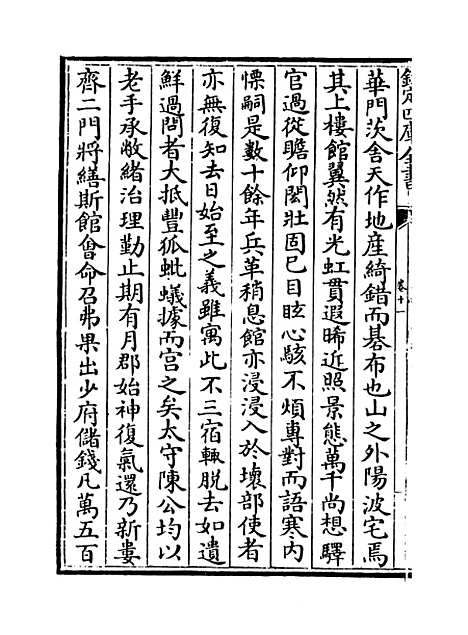 欽定四庫全書
卷十一
華門茨舍天作地産綺錯而棊布也山之外陽波宅焉
其上樓館翼然有光虹貫遐晞近照景態萬千尚想驛
官過從瞻仰閎壯固已目眩心駭不煩專對而語寒内
慄嗣是數十餘年兵革稍息館亦浸浸入於壞部使者
亦無復知去日始至之義雖寓此不三宿輙脱去如遺
鮮過問者大抵豐狐蚍蟻據而宫之矣太守陳公均以
老手承敝緒治理勤止期有月郡始神復氣還乃新婁
齊二門將繕斯館㑹命召弗果出少府儲錢凡萬五百